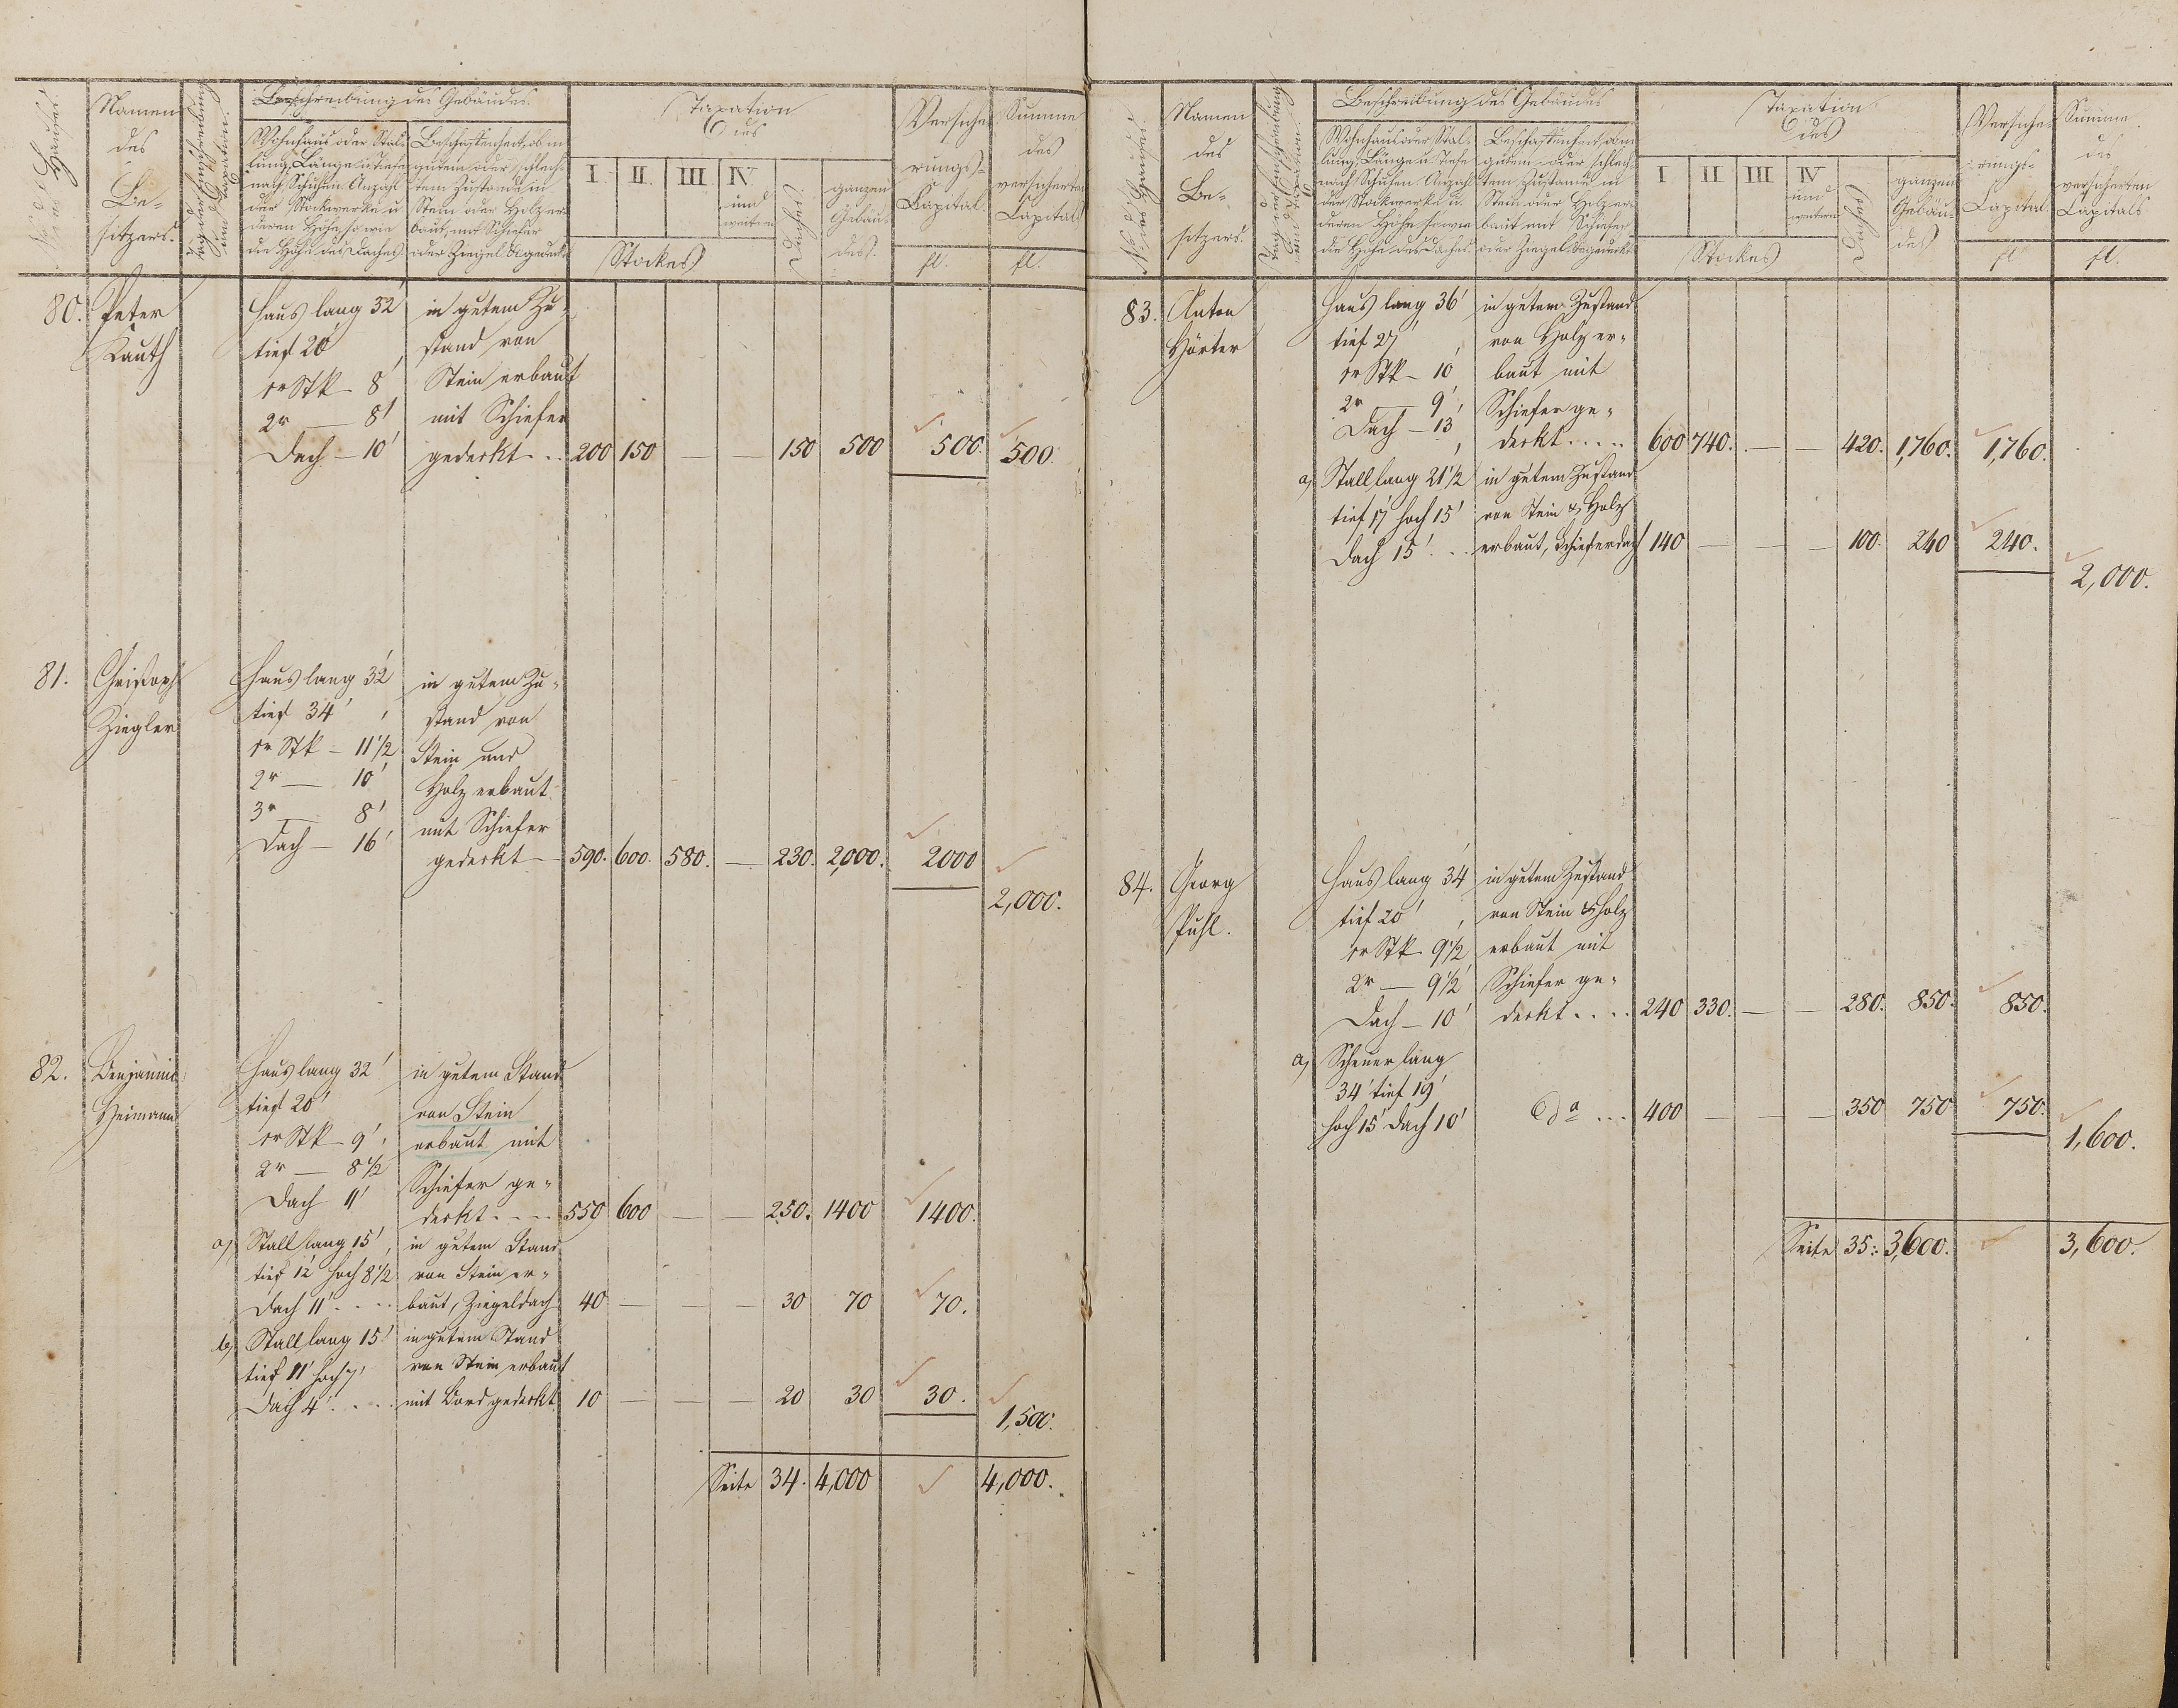 No. des Hauses
Namen
des
Be-
sitzers.
Tag der Einschreibung
und Taxation.
Beschreibung des Gebäudes.
Wohnhaus oder Stal-
lung, Länge u Tiefe
nach Schuhen. Anzahl
der Stockwerke u
deren Höhe, so wie
die Höhe des Daches.
Beschaffenheit, ob in
gutem oder schlech-
tem Zustande in
Stein oder Holz er-
baut, mit Schiefer
oder Ziegel & gedeckt
Taxation
des
I.
II.
III
IV.
und
weiteren
Stockes
Daches.
ganzen
Gebäu-
des.
Versiche-
rungs-
Capital.
fl.
Summe
des
versicherten
Capitals
fl.
80.
Peter
Kauth
Haus lang 32'
tief 20'
1r Stk - 8'
2r — 8'
Dach - 10'
in gutem Zu-
stand von
Stein erbaut
mit Schiefer
gedeckt . . 200 150 — — 150 500 500. 500.
81.
Christoph
Ziegler
Haus lang 32'
tief 34'
1r Stk - 11 1/2'
2r — 10'
3r — 8'
Dach - 16'
in gutem Zu-
stand von
Stein und
Holz erbaut
mit Schiefer
gedeckt — 590. 600. 580. — 230. 2,000. 2000
2,000.
82.
Benjamin
Heimann
Haus lang 32'
tief 20'
1r Stk - 9'
2r — 8 1/2'
Dach 11'
in gutem Stand
von Stein
erbaut mit
Schiefer ge-
deckt . . . . 550 600 — — 250. 1400 1400.
a) Stall lang 15'
tief 12' hoch 8 1/2'
Dach 11' . . . .
in gutem Stand
von Stein er-
baut, Ziegeldach 40 — — — 30 70 70.
b) Stall lang 15'
tief 11' hoch 7'
Dach 4' . . . .
in gutem Stand
von Stein erbaut
mit Bord gedeckt 10 — — — 20 30 30.
1,500.
Seite 34. 4,000 4,000.
No. des Hauses.
Namen
des
Be-
sitzers.
Tag der Einschreibung
und Taxation
Beschreibung des Gebäudes
Wohnhaus oder Stal-
lung, Länge u. Tiefe
nach Schuhen Anzahl
der Stockwerke u.
deren Höhe sowie
die Höhe des Daches.
Beschaffenheit ob in
gutem oder schlech-
tem Zustande in
Stein oder Holz er-
baut mit Schiefer
oder Ziegel & gedeckt
Taxation
des
I.
II
III
IV
und
weiteren
Stockes
Daches
ganzen
Gebäu-
des
Versiche-
rungs-
Capital.
fl
Summe
des
versicherten
Capitals
fl.
83.
Anton
Hörter
Haus lang 36'
tief 27'
1r Stk - 10'
2r — 9'
Dach - 13'
in gutem Zustand
von Holz er-
baut mit
Schiefer ge-
deckt . . . . . 600 740. — — 420. 1,760. 1,760.
a) Stall lang 21 1/2'
tief 17' hoch 15'
Dach 15' . . .
in gutem Zustand
von Stein & Holz
erbaut, Schieferdach 140 — — — 100. 240 240.
2,000.
84.
Georg
Puhl.
Haus lang 34'
tief 20'
1r Stk 9 1/2'
2r — 9 1/2'
Dach - 10'
in gutem Zustand
von Stein & Holz
erbaut mit
Schiefer ge-
deckt . . . . 240 330. — — 280. 850. 850.
a) Scheuer lang
34' tief 19'
hoch 15' Dach 10'
do . . . 400 — — — 350 750 750.
1,600.
Seite 35: 3,600. 3,600.